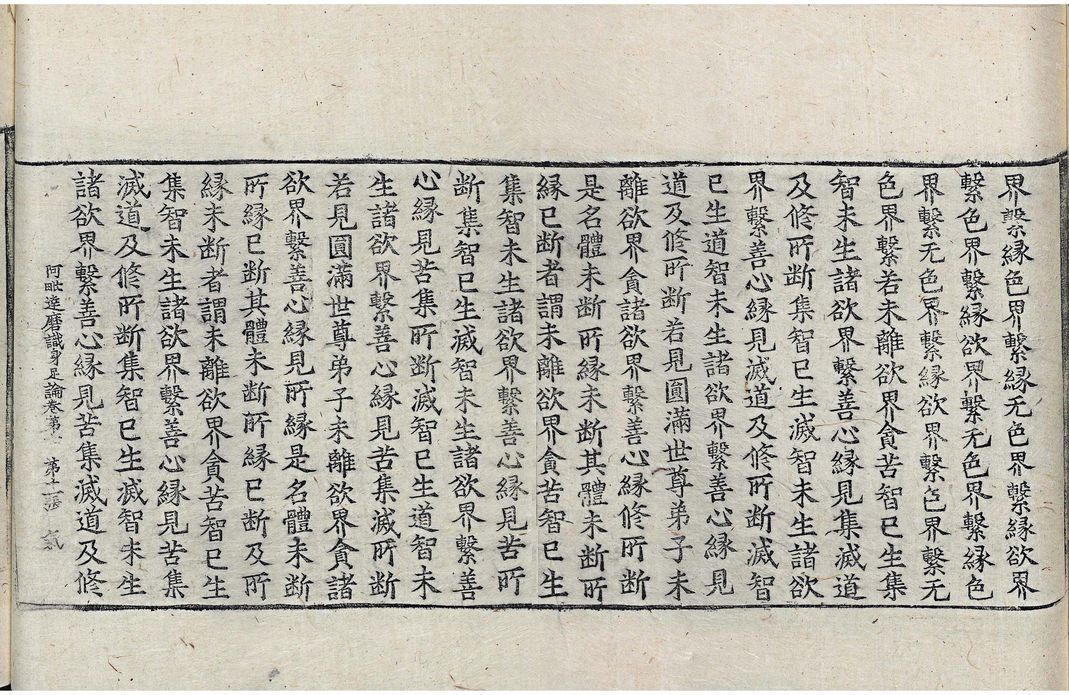 界繫縁色界繫縁无色界繫縁欲界
繫色界繫縁欲界繫无色界繫縁色
界繫无色界繫縁欲界繫色界繫无
色界繫若未離欲界貪苦智已生集
智未生諸欲界繫善心縁見集滅道
及修所断集智已生滅智未生諸欲
界繫善心縁見滅道及修所断滅智
已生道智未生諸欲界繫善心縁見
道及修所断若見圓滿世尊弟子未
離欲界貪諸欲界繫善心縁修所断
是名體未断所縁未断其體未断所
縁已断者謂未離欲界貪苦智已生
集智未生諸欲界繫善心縁見苦所
断集智已生滅智未生諸欲界繫善
心縁見苦集所断滅智已生道智未
生諸欲界繫善心縁見苦集滅所断
若見圓滿世尊弟子未離欲界貪諸
欲界繫善心縁見所縁是名體未断
所縁已断其體未断所縁已断及所
縁未断者謂未離欲界貪苦智已生
集智未生諸欲界繫善心縁見苦集
滅道及修所断集智已生滅智未生
諸欲界繫善心縁見苦集滅道及修
阿毗達磨識身足論卷第 第十 張 氣